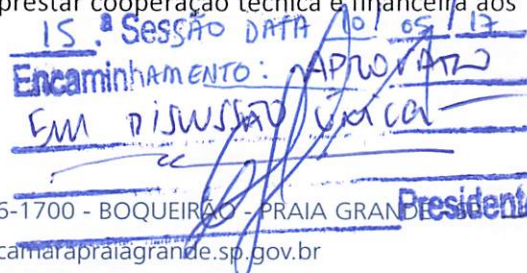 prestar cooperação técnica e financeira aos
15.ª Sessão DATA 10/05/17
Encaminhamento: APROVADO
EM DISCUSSÃO ÚNICA
Presidente
6-1700 - BOQUEIRÃO - PRAIA GRANDE
camarapraiagrande.sp.gov.br